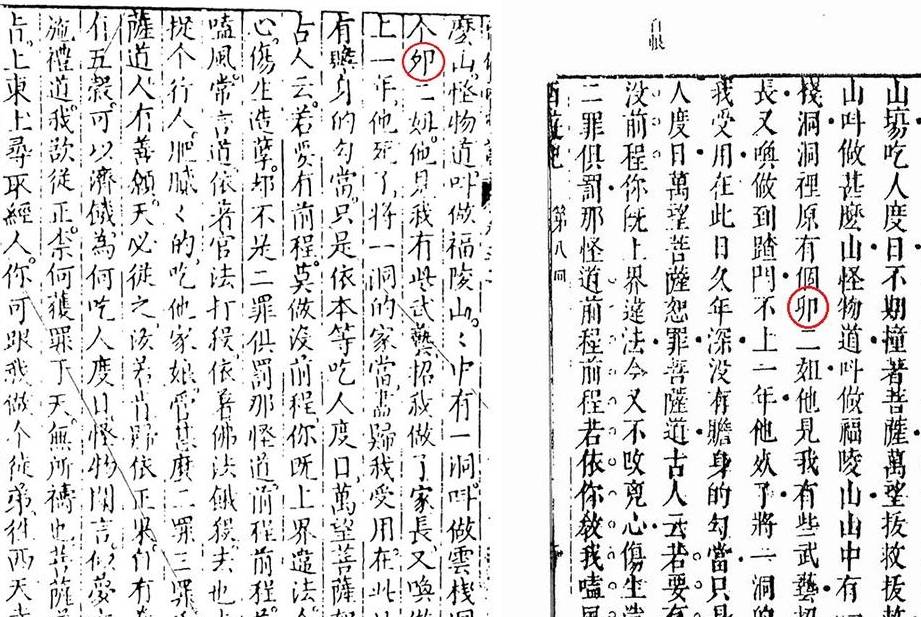 麼山怪物道叫做福陵山〻中有一洞叫做雲棧洞
个卯二姐他見我有些武藝招我做了家長又喚做
上一年他死了將一洞的家當盡歸我受用在此日
有贍身的勾當只是依本等吃人度日萬望菩薩恕
古人云若要有前程莫做沒前程你既上界違法今
心傷生造孽却不是二罪俱罰那怪道前程前程若
嗑風常言道依着官法打殺依着佛法餓殺去也
捉个行人肥膩〻的吃他家娘管甚麼二罪三罪
薩道人有善願天必從之汝若肯歸依正果自有
有五穀可以濟饑為何吃人度日怪物聞言似夢
施禮道我欲從正奈何獲罪于天無所禱也菩薩
旨上東土尋取經人你可跟我做个徒弟往西天
山塲吃人度日不期撞着菩薩萬望拔救拔救
山叫做甚麼山怪物道叫做福陵山山中有一
棧洞洞裡原有個卯二姐他見我有些武藝招
長又喚做到蹅門不上一年他死了將一洞的
我受用在此日久年深沒有贍身的勾當只是
人度日萬望菩薩恕罪菩薩道古人云若要有
沒前程你既上界違法今又不改兇心傷生造
二罪俱罰那怪道前程前程若依你教我嗑風
西遊記
第八回